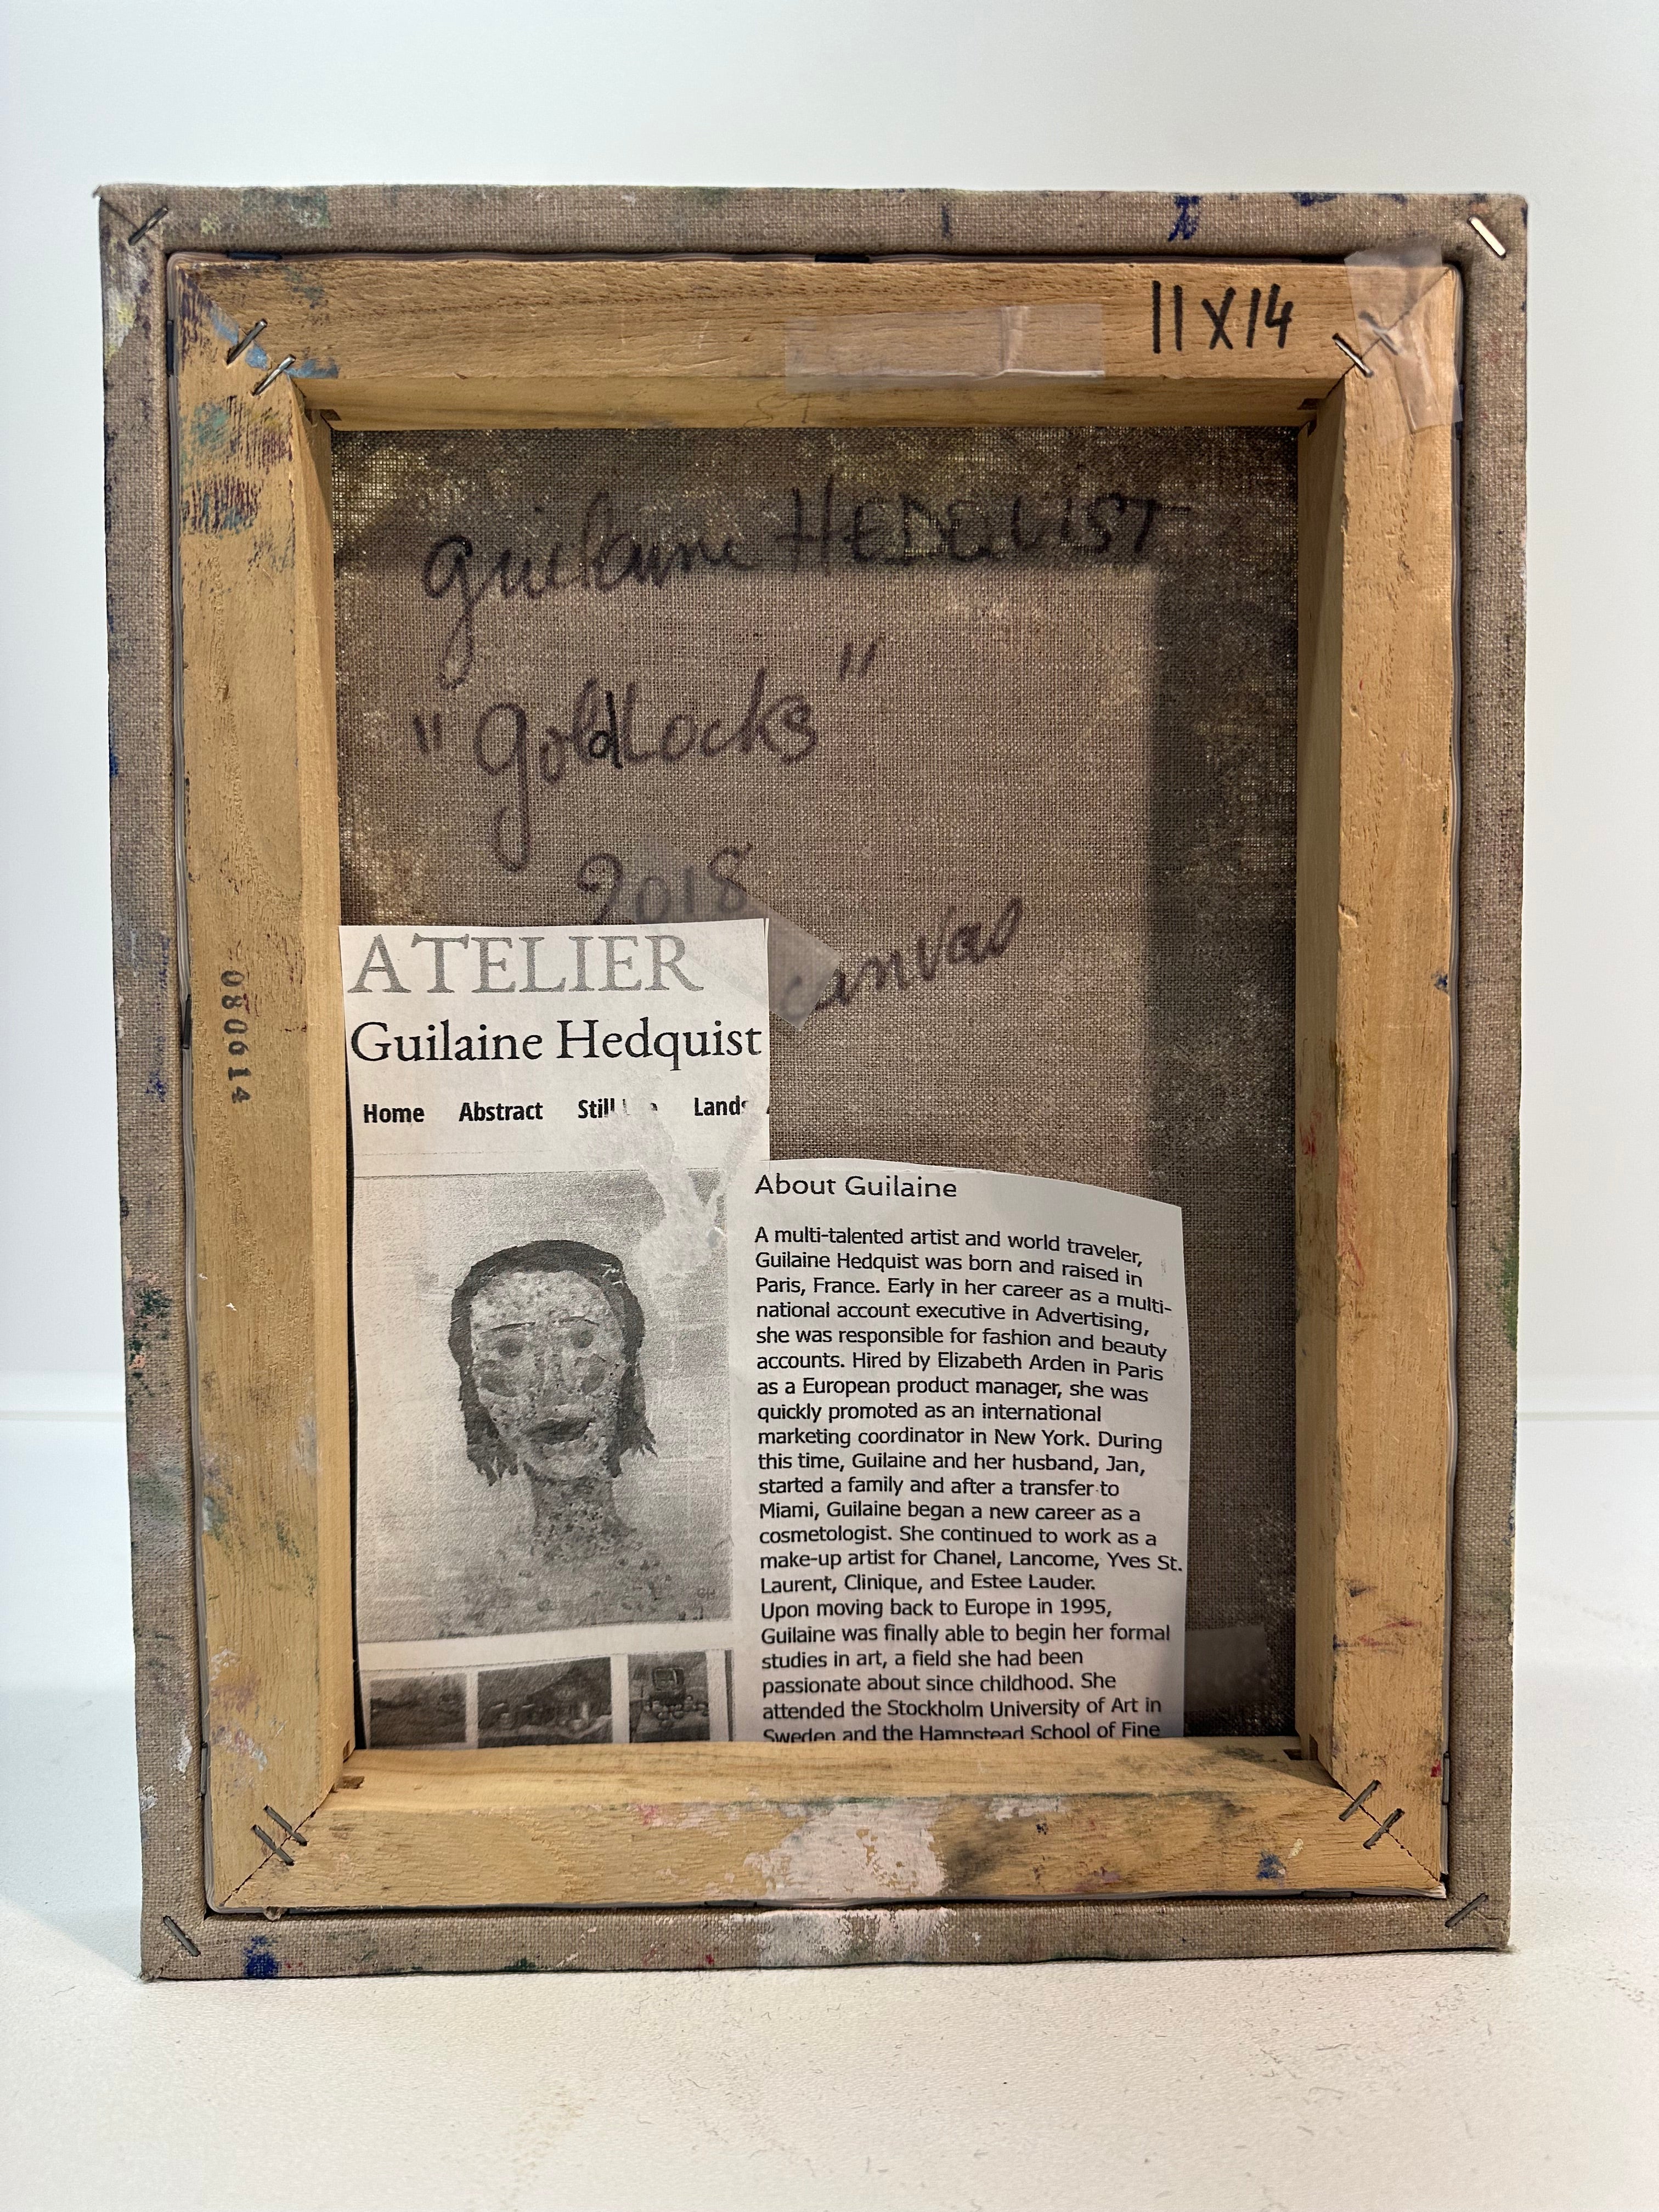 11 X 14
Guilaine HEDQUIST
"GoldLocks"
2018
canvas
080614
ATELIER
Guilaine Hedquist
Home Abstract Still Lands
About Guilaine
A multi-talented artist and world traveler,
Guilaine Hedquist was born and raised in
Paris, France. Early in her career as a multi-
national account executive in Advertising,
she was responsible for fashion and beauty
accounts. Hired by Elizabeth Arden in Paris
as a European product manager, she was
quickly promoted as an international
marketing coordinator in New York. During
this time, Guilaine and her husband, Jan,
started a family and after a transfer to
Miami, Guilaine began a new career as a
cosmetologist. She continued to work as a
make-up artist for Chanel, Lancome, Yves St.
Laurent, Clinique, and Estee Lauder.
Upon moving back to Europe in 1995,
Guilaine was finally able to begin her formal
studies in art, a field she had been
passionate about since childhood. She
attended the Stockholm University of Art in
Sweden and the Hampstead School of Fine